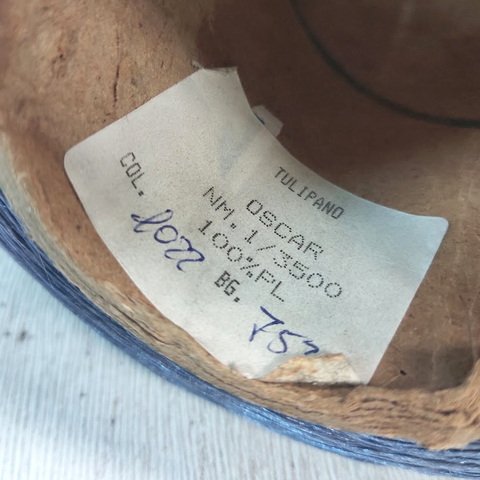 TULIPANO
OSCAR
NM. 1/3500
100%PL
COL. 2208
BG.